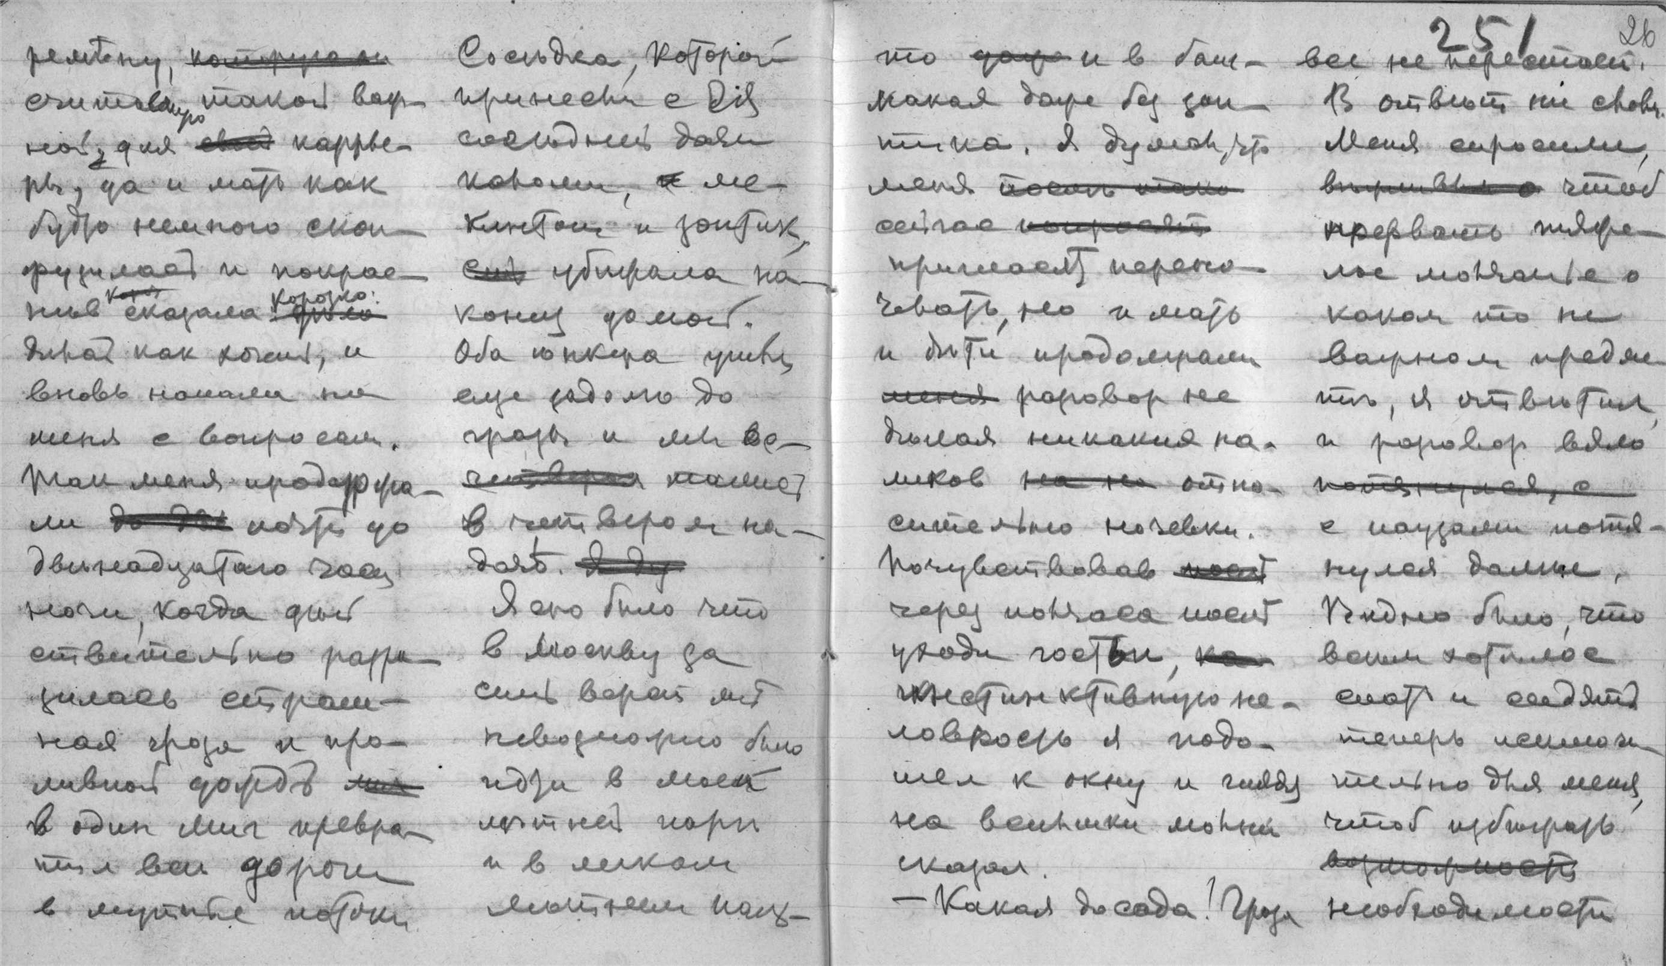 251
26
ремѣну, которую
считали такой важ-
ной для своей карье-
ры, да и мать как
будто немного скон-
фузилась и покрас-
нѣв сказала коротко:
дѣлай как хочешь, и
вновь начали ко
меня с вопросами.
Так меня продержа-
ли почти до
двѣнадцатаго часа
ночи, когда дѣй
ствительно разра
зилась страш-
ная гроза и про-
ливной дождь
в один миг превра-
тил все дороги
в мутные потоки
Сосѣдка, которой
принесли с
сосѣдней дачи
калоши, ма-
кинтош и зонтик,
убѣжала на-
конец домой.
Оба юнкера ушли
еще задолго до
грозы и мы ос-
в четвером на-
Ясно было что
в Москву за
семь верст мѣ
невозможно было
идти в моей
лѣтней парѣ
и в легком
лѣтнем паль-
то и в баш-
маках даже без зон-
тика. Я думал, что
меня
сейчас
пригласят перено-
чевать, но и мать
и дѣти продолжали
разговор не
дѣлая никаких на-
меков отно-
сительно ночевки.
Почувствовав
через полчаса послѣ
ухода гостьи,
инстинктивную не-
ловкость я подо-
шел к окну и глядя
на вспышки молнии
сказал.
— Какая досада! Гроза
все не перестает.
В отвѣт ни слова.
Меня спросили,
чтоб
прервать тяже-
лое молчанье о
каком то не
важном предме
тѣ, я отвѣтил,
и разговор вяло
потянулся, с
с паузами потя-
нулся дальше.
Видно было, что
всѣм хотѣлось
спать и сидят
теперь исключи-
тельно для меня,
чтоб избѣжать
возможность
необходимости